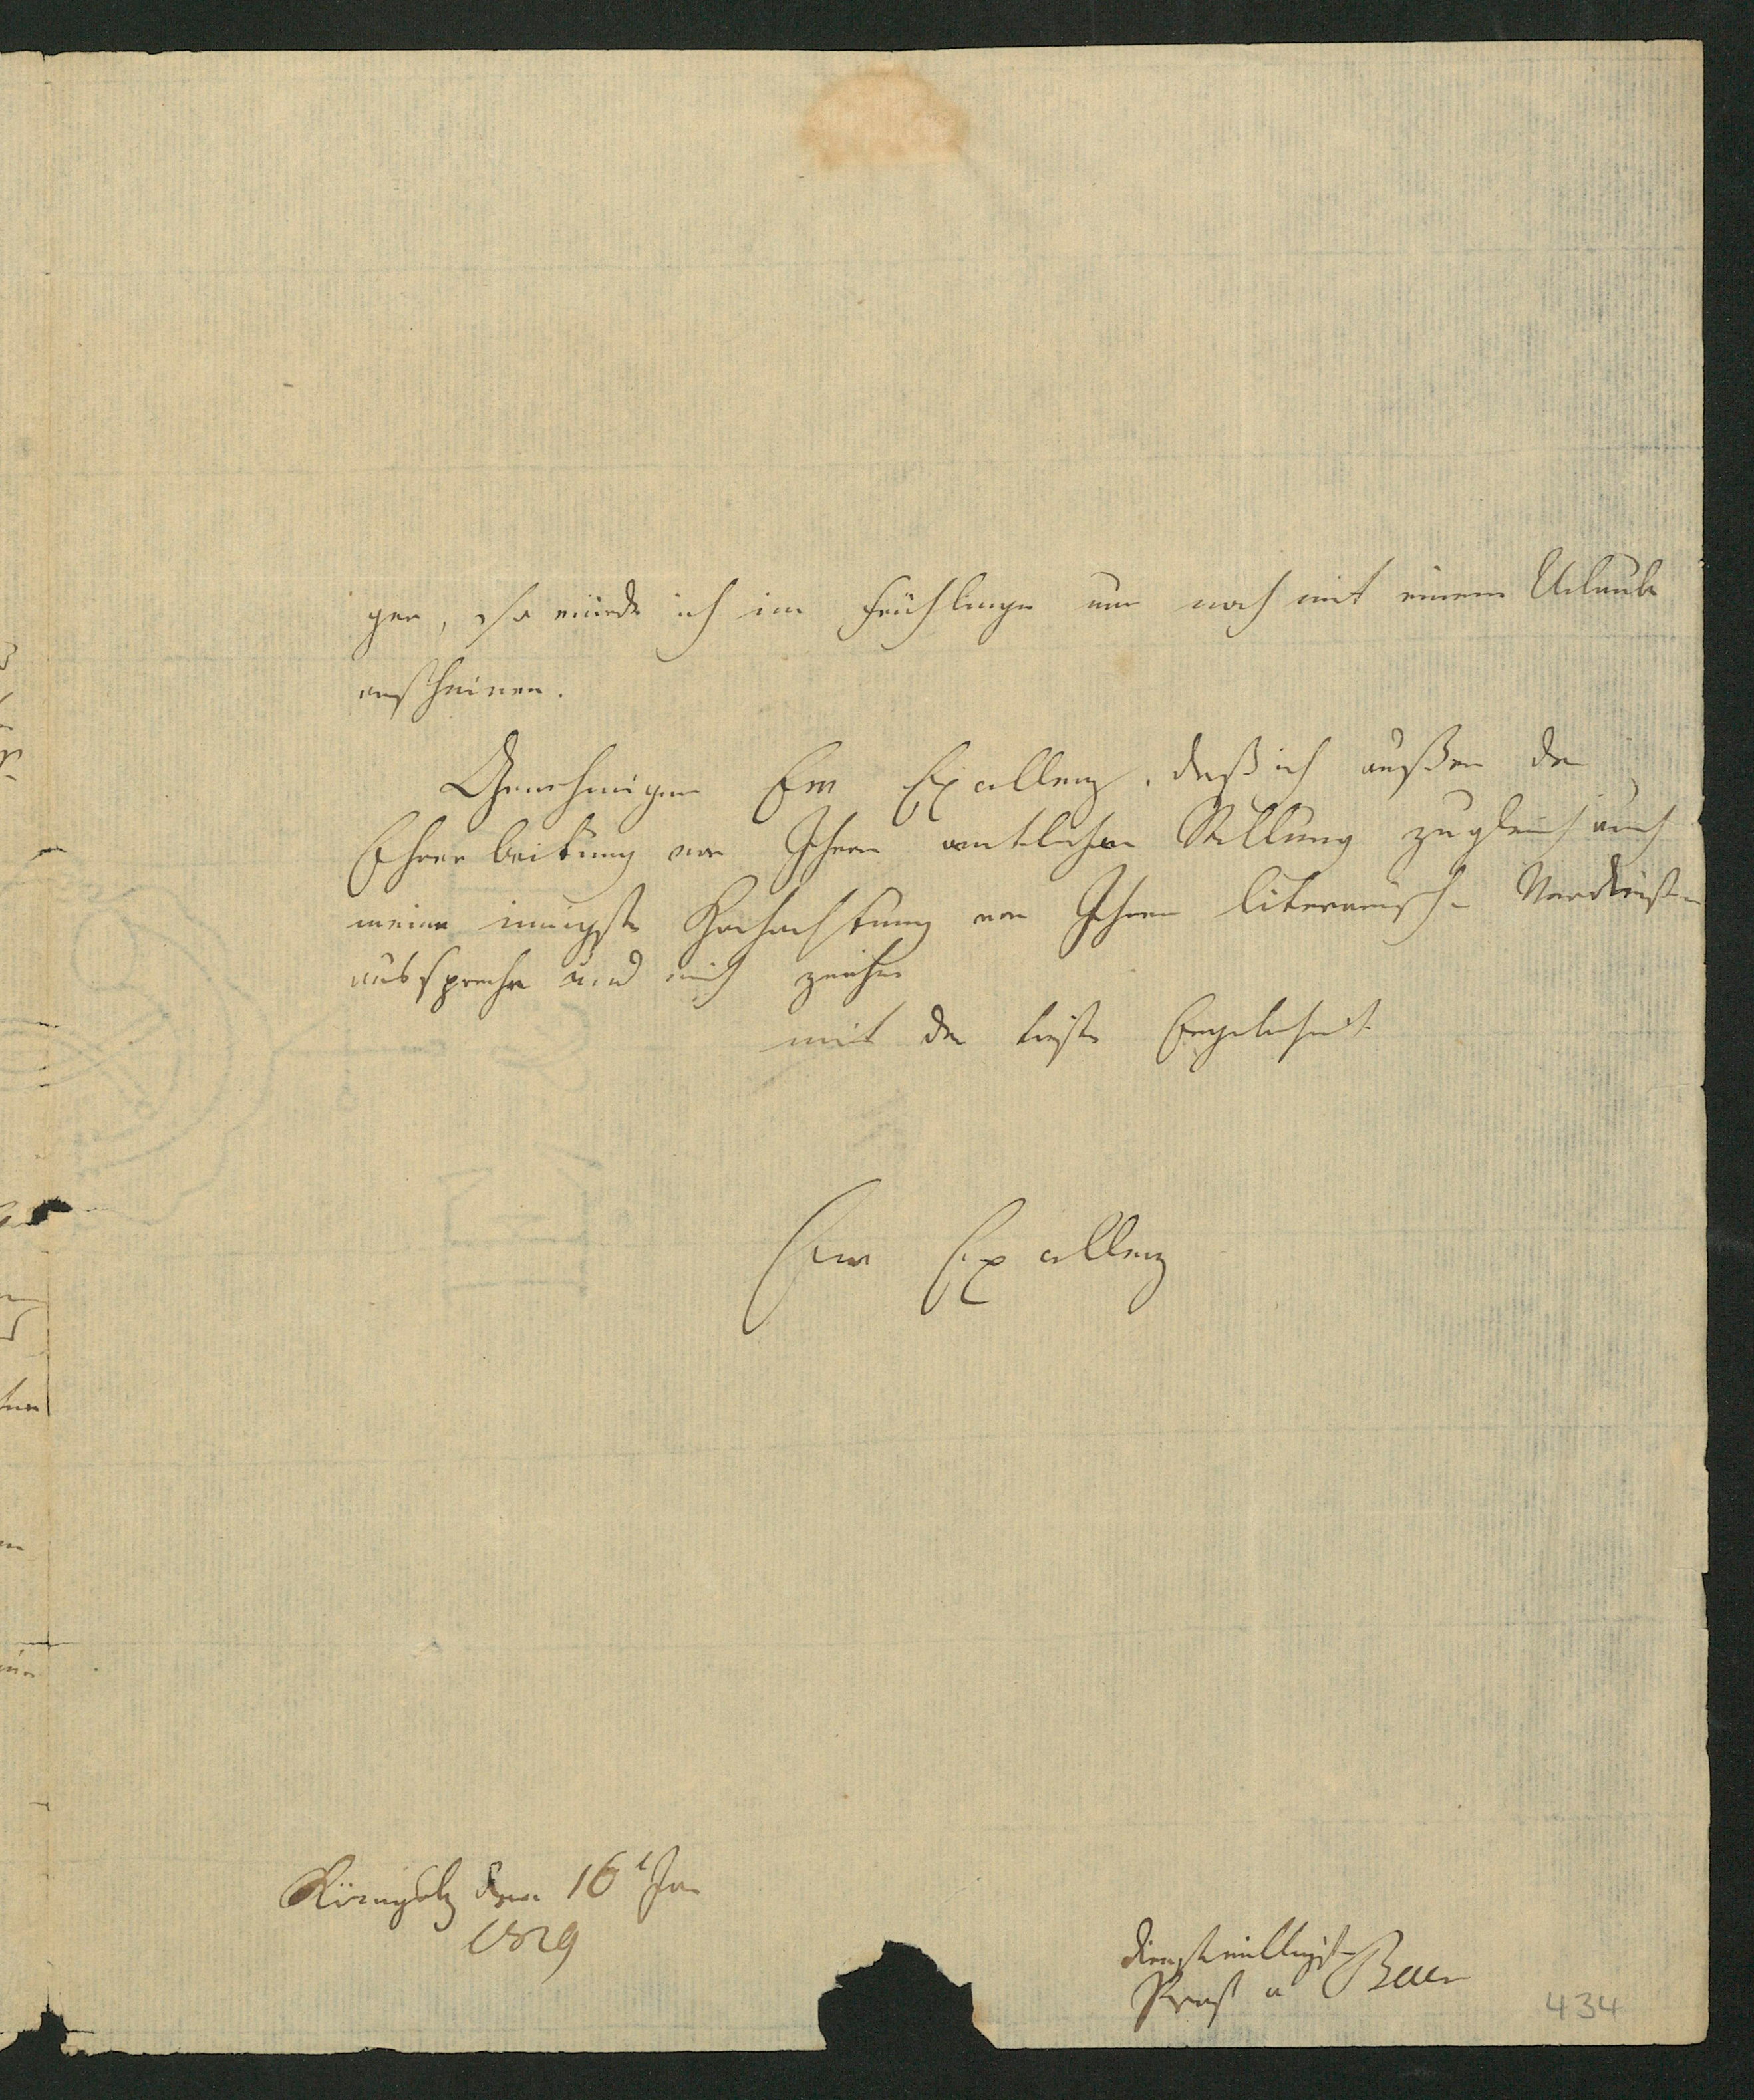 gen, so würde ich im Frühlinge nur noch mit einem Urlaube
erscheinen.
Genehmigen Ew Excellenz, daß ich außer der
Ehrerbietung vor Ihrer amtlichen Stellung zugleich auch
meine innigste Hochachtung vor Ihren literarischen Verdiensten
ausspreche und mich zeichne
mit der tiefsten Ergebenheit
Ew Excellenz
Königsbg den 16t Jan
1829
dienstwilligst
Baer
434